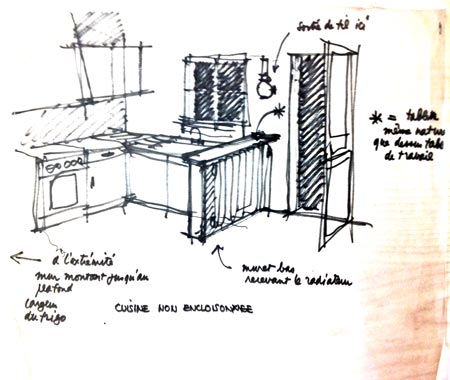 sortie de fil ici
* = tablette
même nature
que dessus table
de travail
à l'extrémité
mur montant jusqu'au
plafond
largeur
du frigo
muret bas
recevant le radiateur
CUISINE NON ENCLOISONNEE